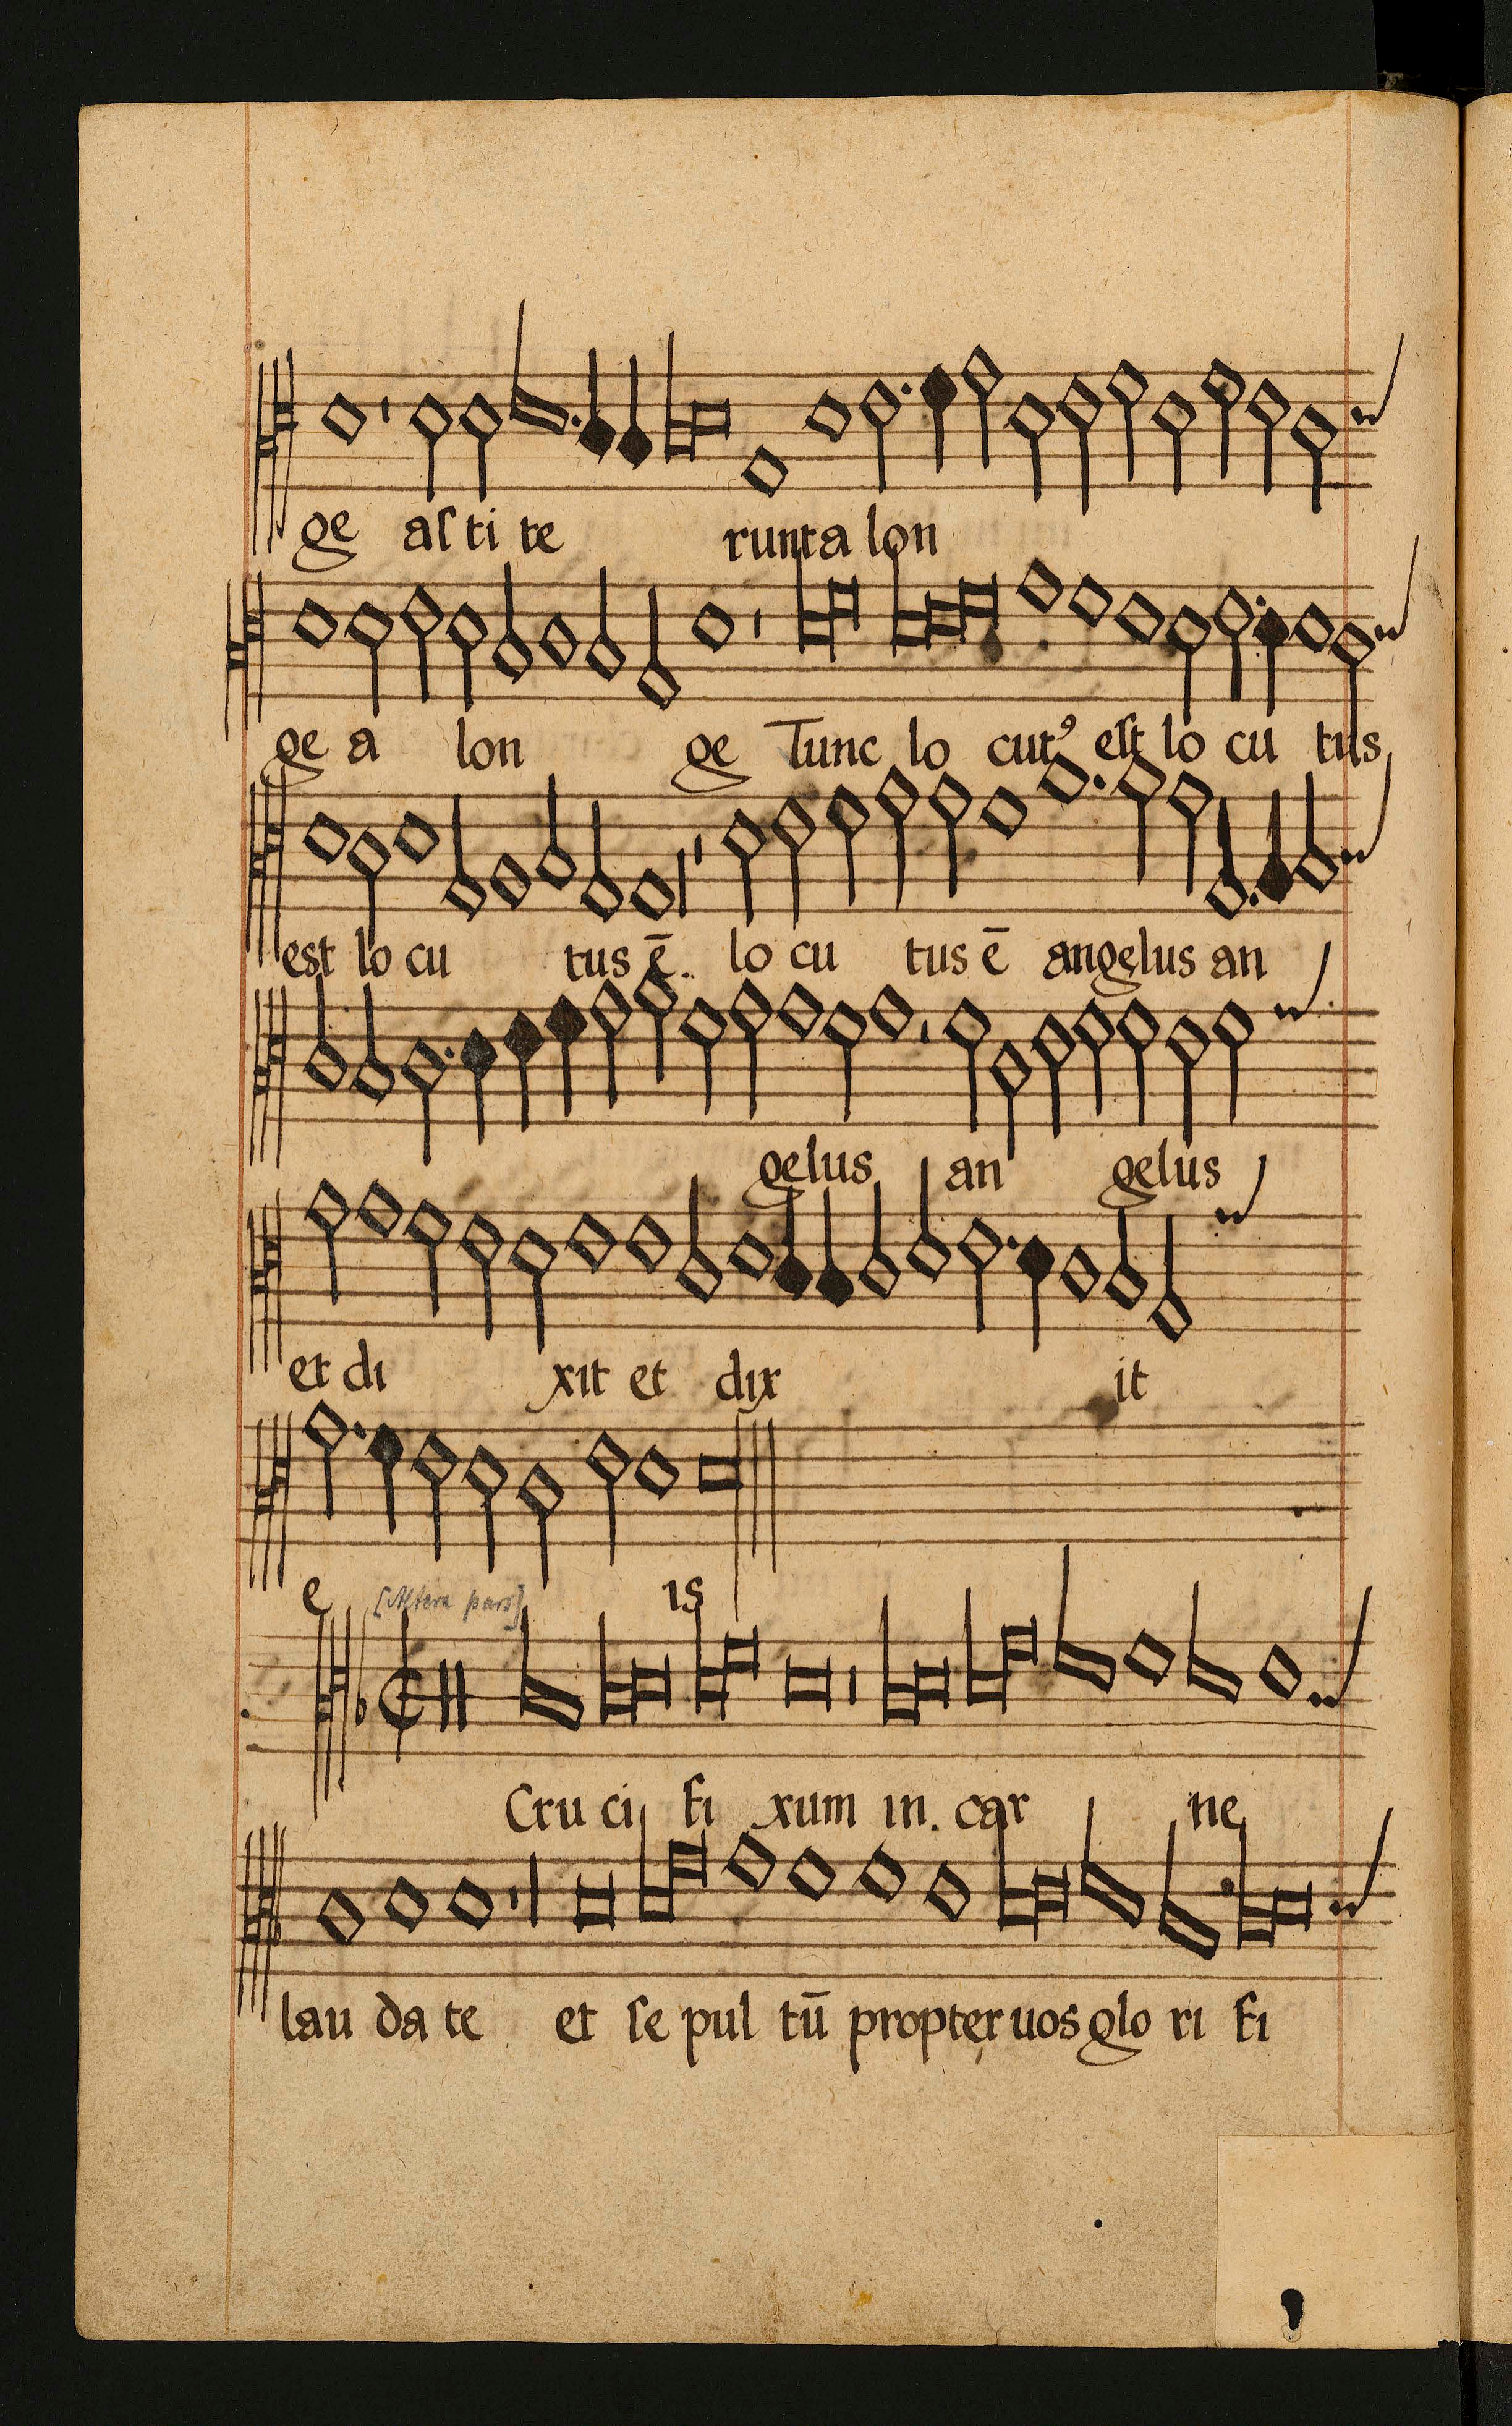 ge aſ ti te runt a lon
ge a lon ge Tunc lo cutꝰ eſt lo cu tus
est lo cu tus ē. lo cu tus ē angelus an
gelus an gelus
et di xit et dix it
e is
[Altera pars]
Cru ci fi xum in. car ne
lau da te et ſe pul tū propter uos glo ri fi